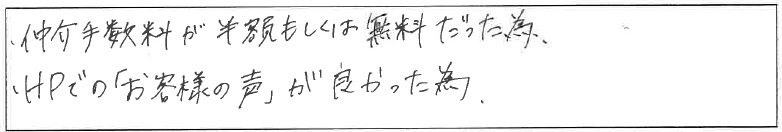 ・仲介手数料が半額もしくは無料だった為、
・HPでの「お客様の声」が良かった為、